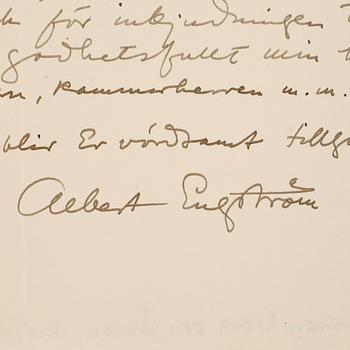 för inbjudningen
godhetsfullt min
kammarherren m.m.
blir Er vördsamt tillg
Albert Engström